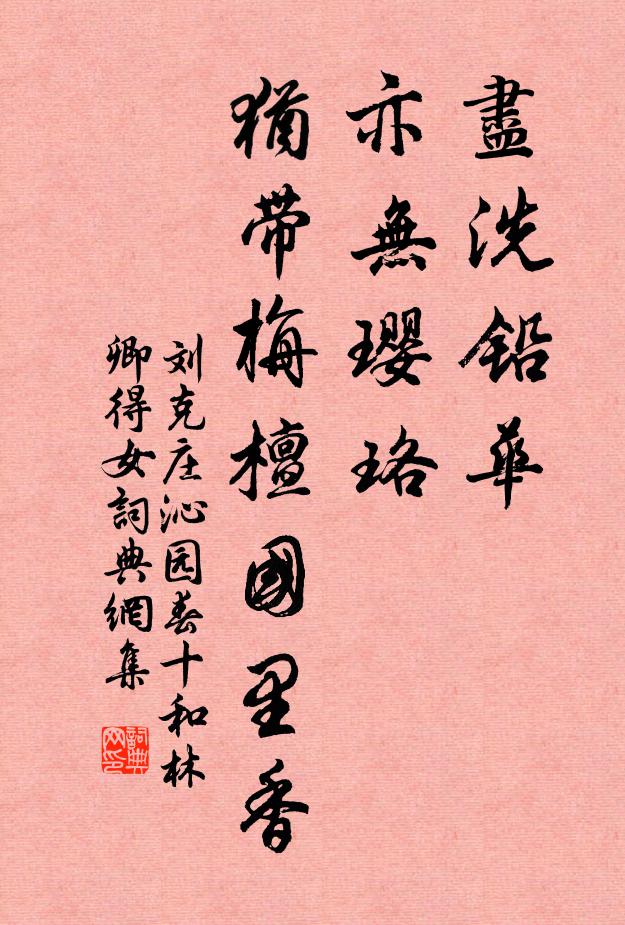 盡洗鉛華
亦無瓔珞
猶帶梅檀國里香
刘克庄沁园春十和林
卿得女詞典網集
詞典
网印